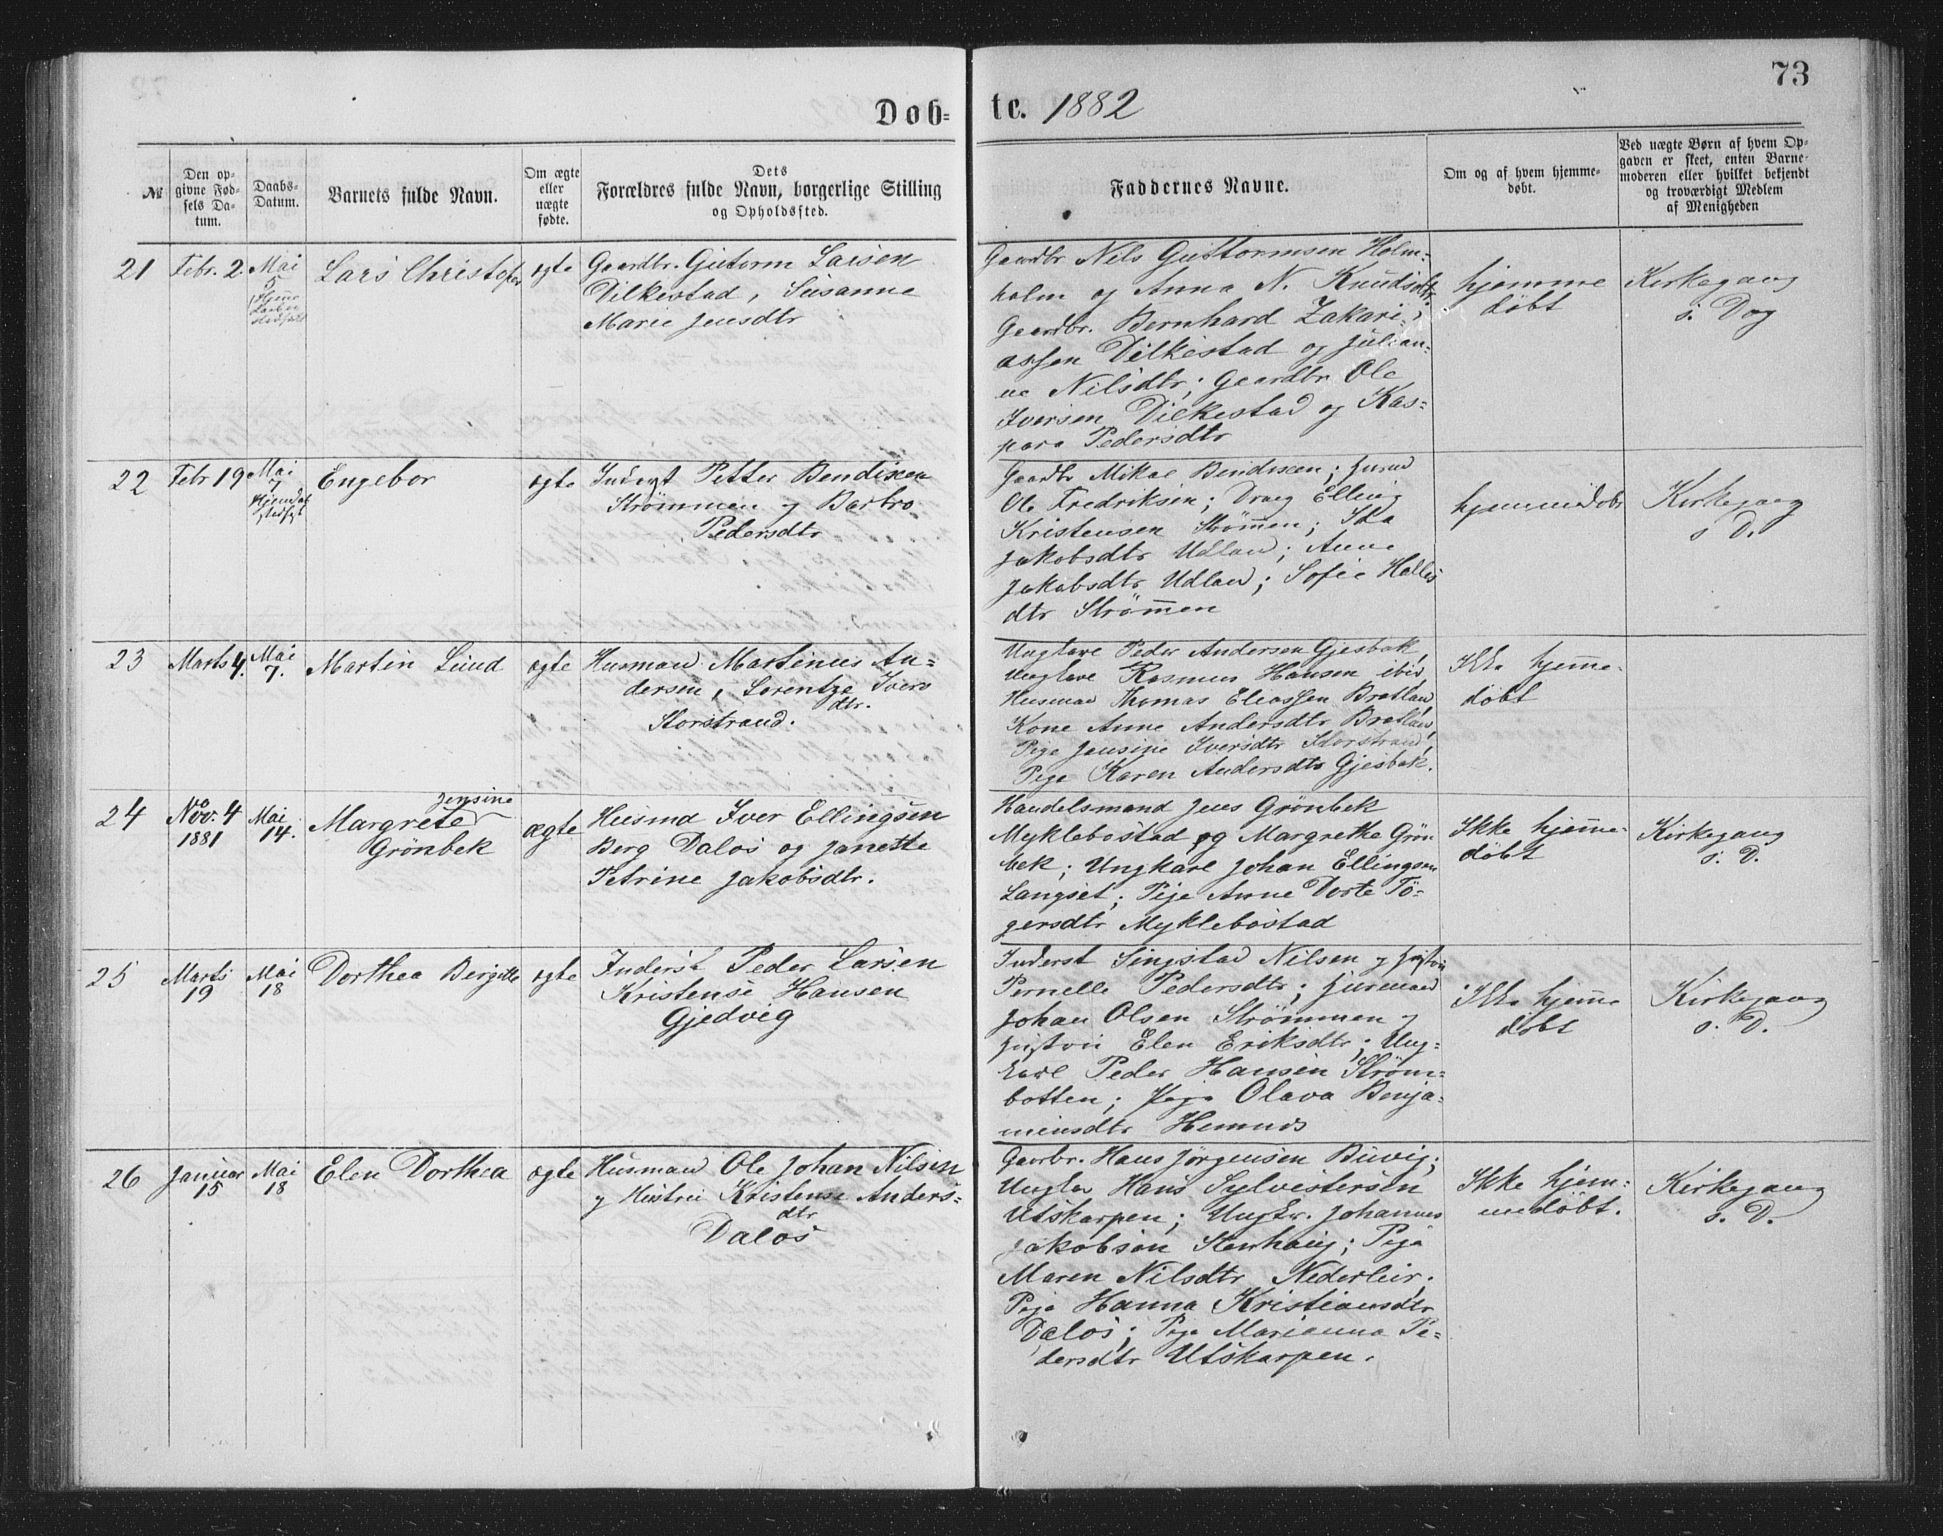 73
Døb= te. 1882
№
Den op-
givne Fød-
sels Da-
tum.
Daabs-
Datum.
Barnets fulde Navn.
Om ægte
eller
uægte
fødte.
Dets
Forældres fulde Navn, borgerlige Stilling
og Opholdssted.
Faddernes Navne.
Om og af hvem hjemme-
døbt.
Ved uægte Børn af hvem Op-
gaven er skeet, enten Barne-
moderen eller hvilket bekjendt
og troværdigt Medlem
af Menigheden
21
Febr. 2.
Mai
5
Lars Christofer
ægte
Gaardbr. Gutorm Larsen
Dilkestad, Susanne
Marie Jensdtr
Gaardbr Nils Guttormsen Holm-
holm og Anna N. Knudsdtr
Gaardbr. Bernhard Zakari-
assen Dilkestad og Julian-
ne Nilsdtr; Gaardbr Ole
Iversen Dilkestad og Kas-
para Pedersdtr
hjemme
døbt
Kirkegang
s. Dag
22
Febr 19
Mai
7
Engebor
ægte
Petter Bendixen
Strømmen og Barbro
Pedersdtr
Gaardbr Mikal Bendixen;
Ole Fredriksen; Dreng Elling
Kristensen Strømen; Ida
Jakobsdtr Udlan; Anne
Jakobsdtr Udlan; Sofie Halles
dtr Strømen
hjemmedøbt
Kirkegang
s D.
23
Marts 4.
Mai
7.
Martin Lund
ægte
Husmand Martinus An-
dersen, Lorentze Ivers
dtr.
Storstrand.
Ungkare Peder Andersen Gjesbak,
Ungkare Rasmus Hansen ibid,
Husman Thomas Eliassen Bratlan,
Kone Anne Andersdtr Bratlan,
Pige Jensine Iversdtr Storstrand,
Pige Karen Andersdtr Gjesbak.
Ikke hjeme-
døbt
24
Nov. 4
1881
Mai
14.
Jensine
Margrete
Grønbek
ægte
Husmd Iver Ellingsen
Berg Dalos og Janette
Petrine Jakobsdtr.
Handelsmand Jens Grønbek
Myklebostad og Margrethe Grøn
bek; Ungkarl Johan Ellingsen
Langset; Pige Anne Dorte Tø-
gersdtr Myklebostad
Ikke hjeme-
døbt
Kirkegang
s. D.
25
Marts
19
Mai
18
Dorthea Bergitte
ægte
Inderst Peder Larsen
Kristense Hansen
Gjedvig
Inderst Singstad Nilsen og
Pernelle Pedersdtr;
Johan Olsen Strømmen og
Elen Eriksdtr; Ung-
karl Peder Hansen Strøm-
botten; Pige Olava Benja-
minsdtr Hemnes
Ikke hjeme
døbt
Kirkegang
s. D.
26
Januar
15
Mai
18
Elen Dorthea
ægte
Husman Ole Johan Nilsen
og Hustru Kristense Anders-
dtr
Dalos
Gaarbr. Hans Jørgensen Buvig;
Ungkar Hans Sylvestersen
Utskarpen; Ungkr. Johannes
Jakobsen Stenhaug; Pige
Maren Nilsdtr Nederleir.
Pige Hanna Kristiansdtr
Dalos; Pige Marianna Pe-
dersdtr Utskarpen.
Ikke hjem-
medøbt.
Kirkegang
s. D.